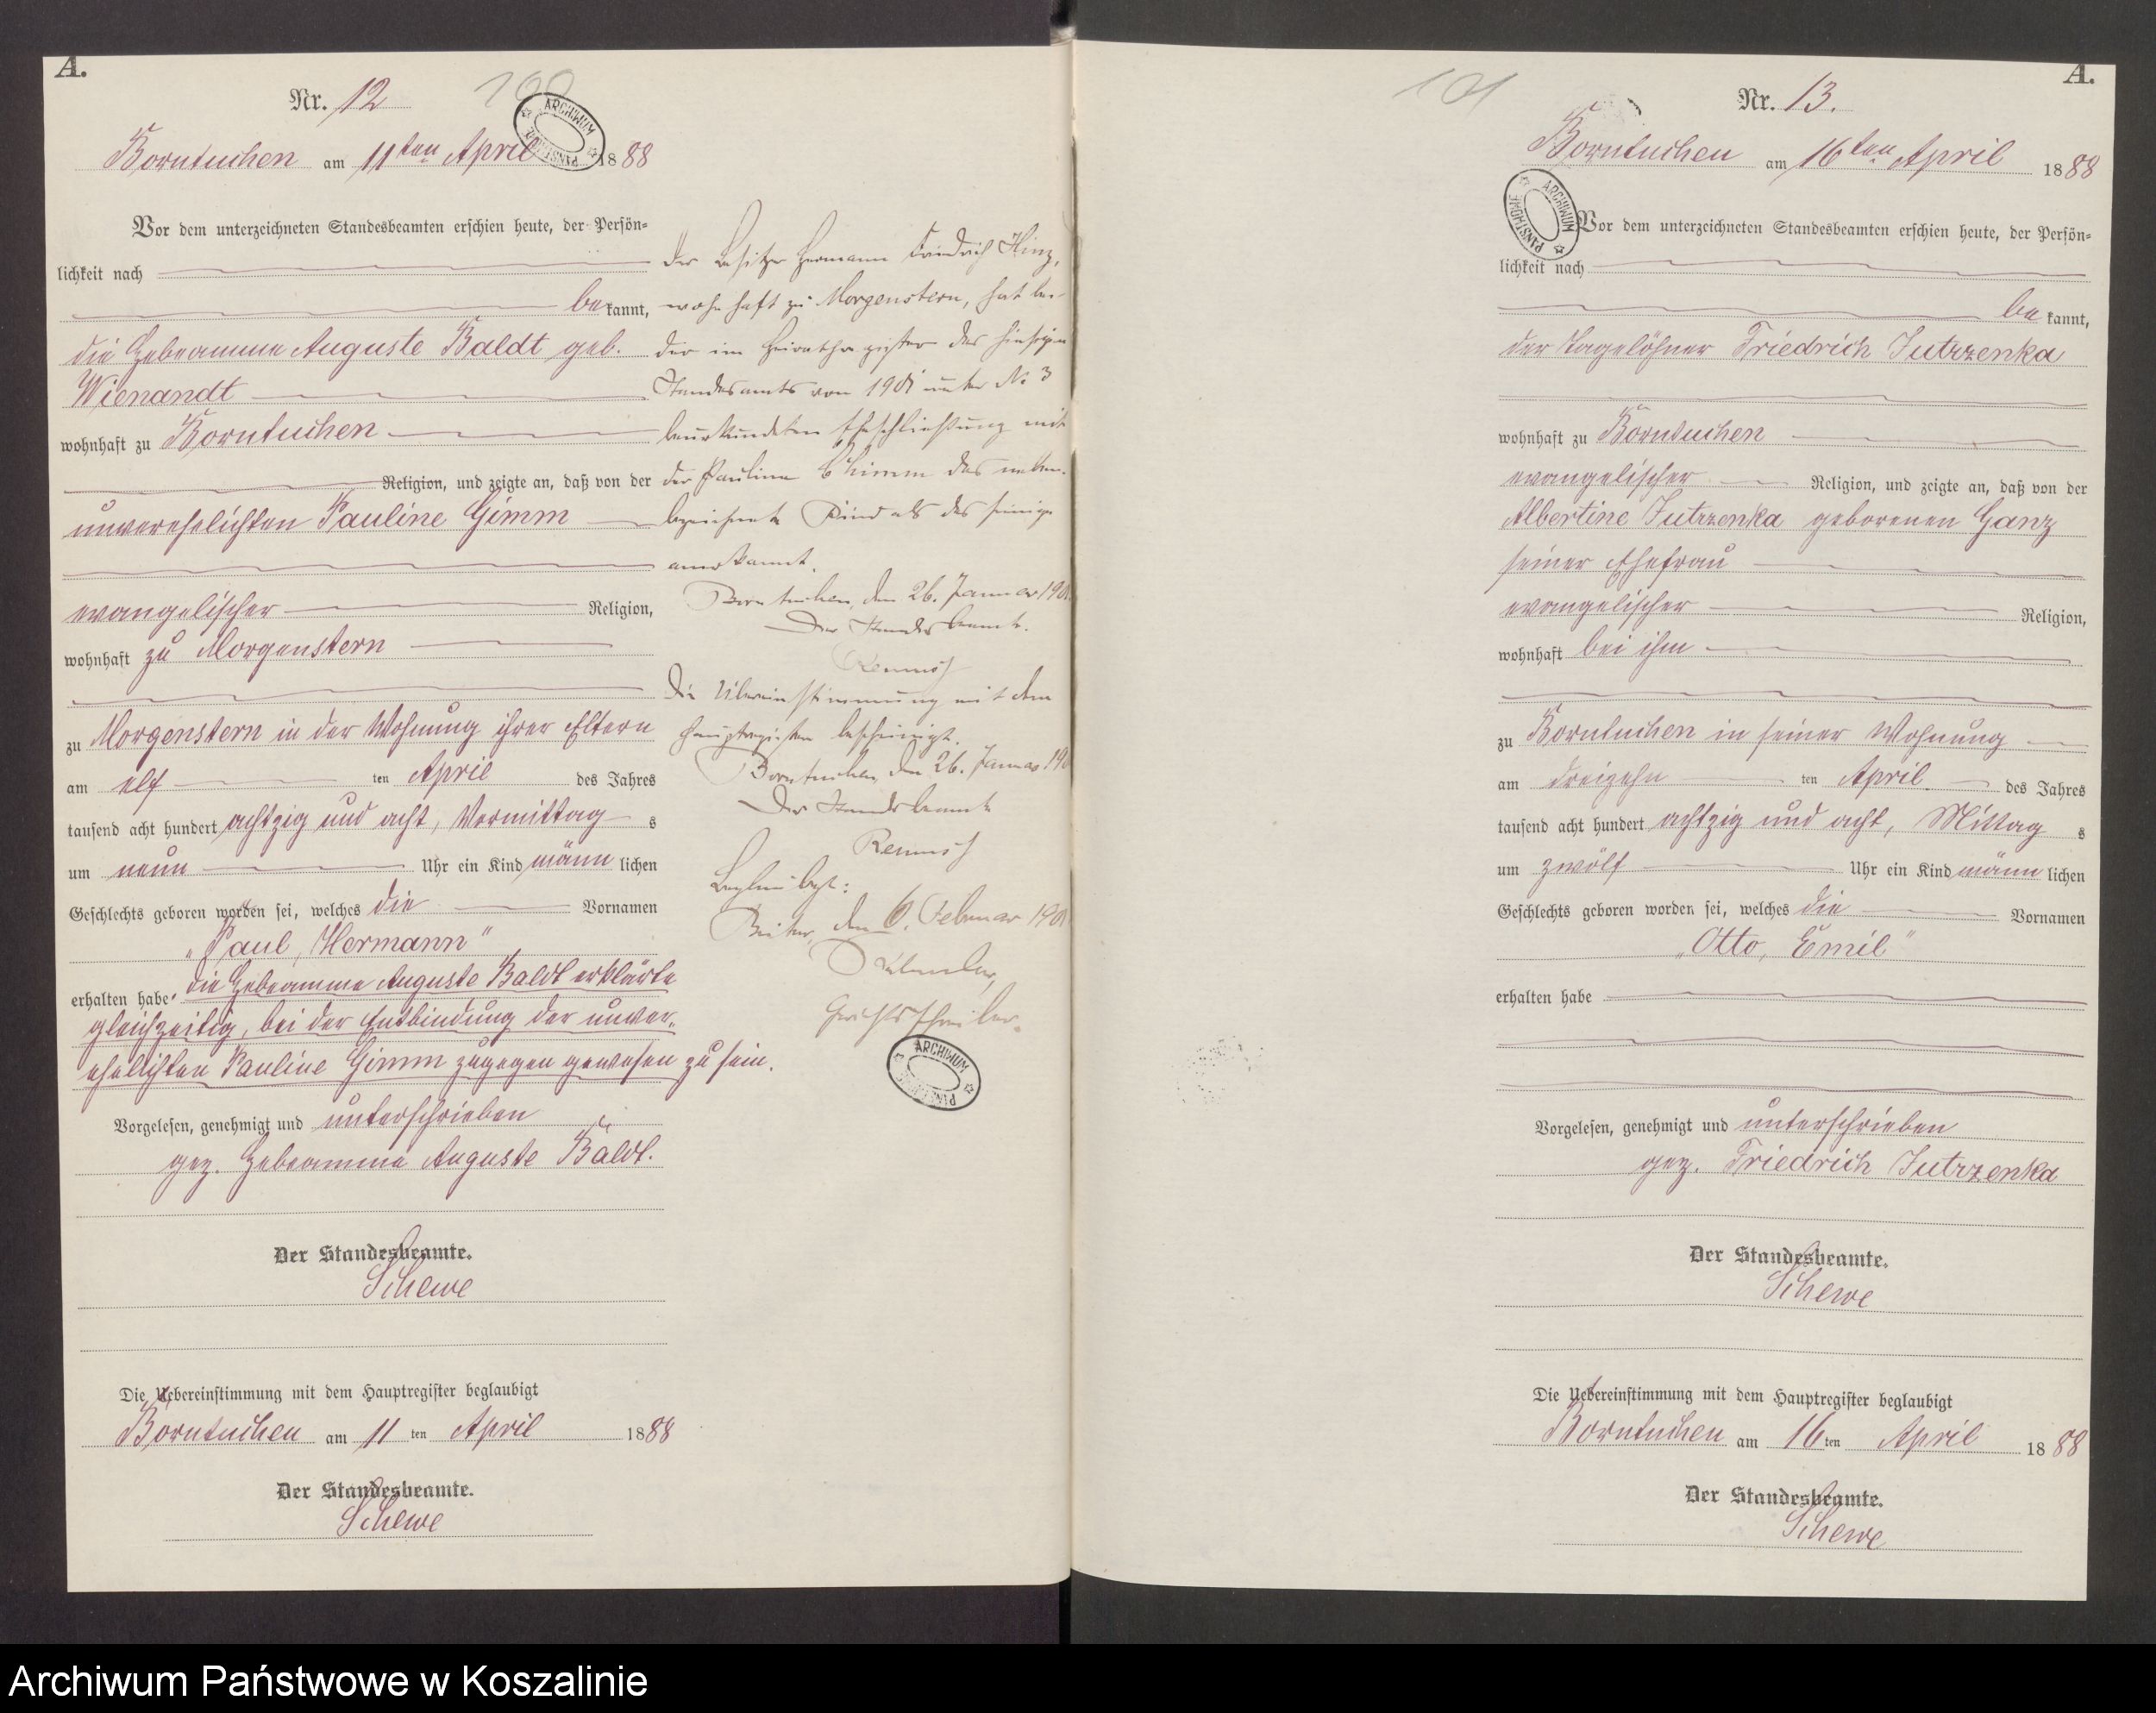 A.
Nr. 12
100
Borntuchen am 11ten April 1888
Vor dem unterzeichneten Standesbeamten erschien heute, der Persön-
lichkeit nach
bekannt,
die Hebeamme Auguste Baldt geb.
Wienandt
wohnhaft zu Borntuchen
Religion, und zeigte an, daß von der
unverehelichten Pauline Gimm
evangelischer Religion,
wohnhaft zu Morgenstern
zu Morgenstern in der Wohnung ihrer Eltern
am elf ten April des Jahres
tausend acht hundert achtzig und acht, Vormittag s
um neun Uhr ein Kind männlichen
Geschlechts geboren worden sei, welches die Vornamen
„Paul, Hermann“
erhalten habe, die Hebeamme Auguste Baldt erklärte
gleichzeitig, bei der Entbindung der unver-
ehelichten Pauline Gimm zugegen gewesen zu sein.
Vorgelesen, genehmigt und unterschrieben
gez. Hebeamme Auguste Baldt.
Der Standesbeamte.
Schewe
Die Uebereinstimmung mit dem Hauptregister beglaubigt
Borntuchen am 11 ten April 1888
Der Standesbeamte.
Schewe
Der Besitzer Hermann Friedrich Hinz,
wohnhaft zu Morgenstern, hat bei
der im Heirathsregister des hiesigen
Standesamts von 1901 unter No 3
beurkundeten Eheschließung mit
der Pauline Chimm das neben-
bezeichnete Kind als das seinige
anerkannt.
Borntuchen, den 26. Januar 190
Der Standesbeamte.
Die Übereinstimmung mit dem
Hauptregister bescheinigt.
Borntuchen, den 26. Januar 190
Der Standesbeamte
Beglaubigt:
Bütow, den 6. Februar 1901
Gerichtsschreiber.
ARCHIWUM
101
A.
Nr. 13.
Borntuchen am 16ten April 1888
Vor dem unterzeichneten Standesbeamten erschien heute, der Persön-
lichkeit nach
bekannt,
der Tagelöhner Friedrich Jutrzenka
wohnhaft zu Borntuchen
evangelischer Religion, und zeigte an, daß von der
Albertine Jutrzenka geborenen Ganz
seiner Ehefrau
evangelischer Religion,
wohnhaft bei ihm
zu Borntuchen in seiner Wohnung
am dreizehn ten April des Jahres
tausend acht hundert achtzig und acht, Mittag s
um zwölf Uhr ein Kind männlichen
Geschlechts geboren worden sei, welches die Vornamen
„Otto, Emil“
erhalten habe
Vorgelesen, genehmigt und unterschrieben
gez. Friedrich Jutrzenka
Der Standesbeamte.
Schewe
Die Uebereinstimmung mit dem Hauptregister beglaubigt
Borntuchen am 16 ten April 1888
Der Standesbeamte.
Schewe
Archiwum Państwowe w Koszalinie